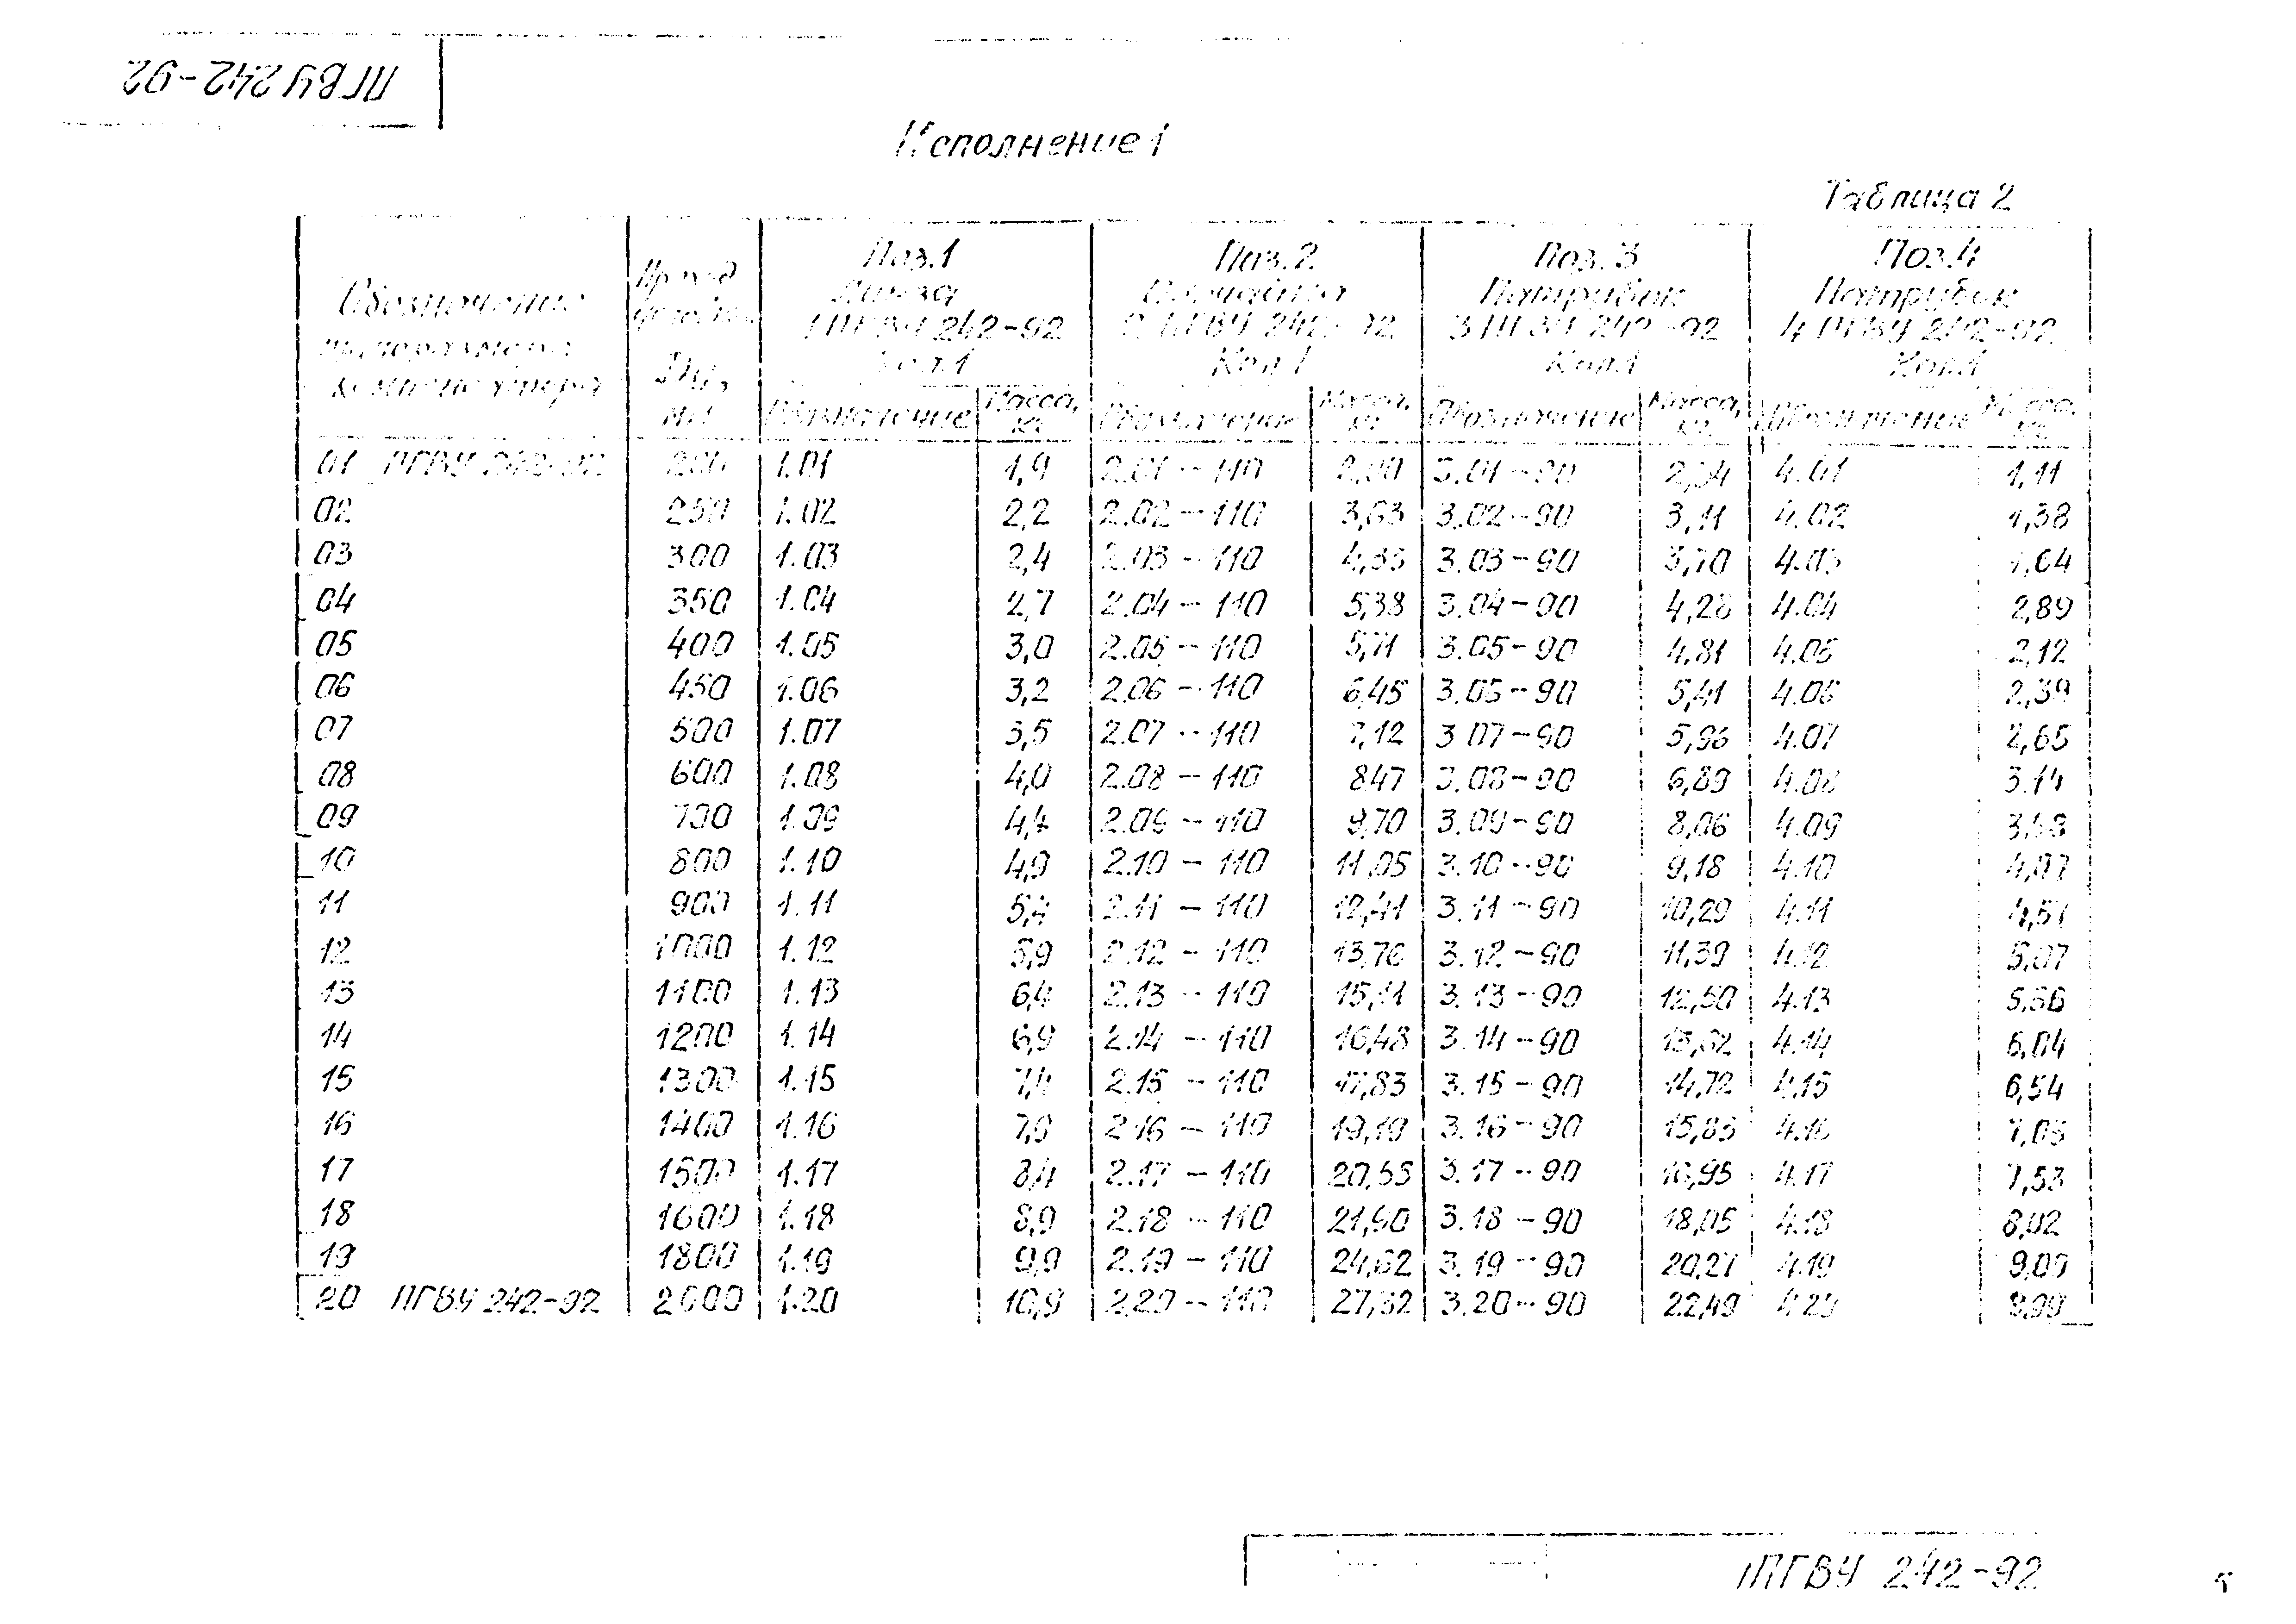 ПГВУ 242-92
Исполнение 1
Таблица 2
Обозначение типоразмера компенсатора
Проход условный Dу, мм
Поз.1 Линза 1 ПГВУ 242-92 Кол.1
Поз.2 242-92 Кол 1
Поз.3 Патрубок 3 ПГВУ 242-92 Кол.1
Поз.4 Патрубок 4 ПГВУ 242-92 Кол.1
Обозначение Масса, кг Обозначение Масса, кг Обозначение Масса, кг Обозначение Масса, кг
01 ПГВУ 242-92 200 1.01 1,9 2.01-110 3.01-90 4.01 1,11
02 250 1.02 2,2 2.02-110 3,63 3.02-90 3,11 4.02 1,38
03 300 1.03 2,4 2.03-110 3.03-90 3,70 4.03 1,64
04 350 1.04 2,7 2.04-110 5,38 3.04-90 4,28 4.04 2,89
05 400 1.05 3,0 2.05-110 5,71 3.05-90 4,81 4.05 2,12
06 450 1.06 3,2 2.06-110 6,45 3.06-90 5,41 4.06 2,39
07 500 1.07 3,5 2.07-110 7,12 3.07-90 5,96 4.07 2,65
08 600 1.08 4,0 2.08-110 8,47 3.08-90 6,89 4.08 3.14
09 700 1.09 4,4 2.09-110 9,70 3.09-90 8,06 4.09 3,58
10 800 1.10 4,9 2.10-110 11,05 3.10-90 9,18 4.10 4,07
11 900 1.11 5,4 2.11-110 12,41 3.11-90 10,29 4.11 4,57
12 1000 1.12 5,9 2.12-110 13,76 3.12-90 11,39 4.12 5,07
13 1100 1.13 6,4 2.13-110 15,11 3.13-90 12,50 4.13 5,56
14 1200 1.14 6,9 2.14-110 16,48 3.14-90 13,62 4.14 6,04
15 1300 1.15 7,4 2.15-110 17,83 3.15-90 14,72 4.15 6,54
16 1400 1.16 7,9 2.16-110 19,19 3.16-90 15,83 4.16 7,03
17 1500 1.17 8,4 2.17-110 20,55 3.17-90 16,95 4.17 7,53
18 1600 1.18 8,9 2.18-110 21,90 3.18-90 18,05 4.18 8,02
19 1800 1.19 9,9 2.19-110 24,62 3.19-90 20,27 4.19 9,09
20 ПГВУ 242-92 2000 1.20 10,9 2.20-110 27,32 3.20-90 22,49 4.20 9,99
ПГВУ 242-92
5